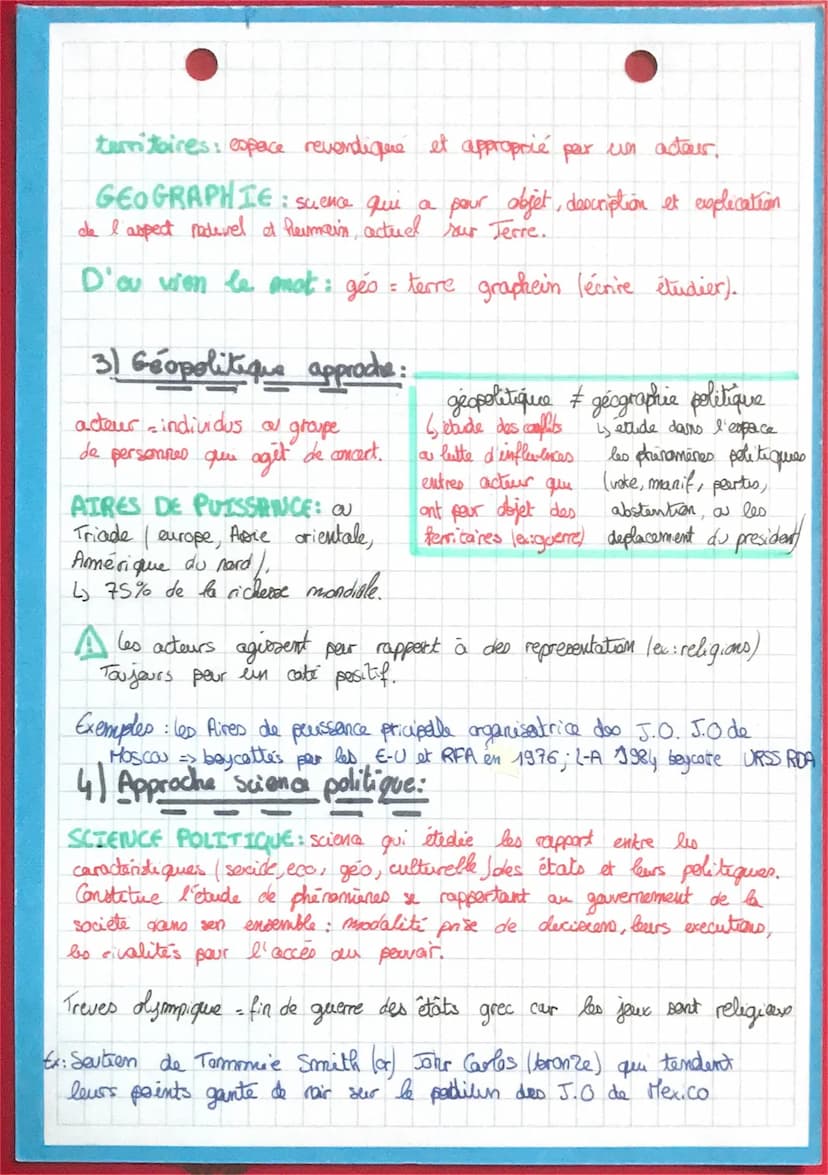 territoires : espace revendiqué et approprié par un acteur.
GEOGRAPHIE : science qui a pour objet, description et explication
de l'aspect naturel et humain, actuel sur Terre.
D'ou vien le mot : géo = terre graphein (écrire étudier).
3) Géopolitique approche :
acteur = individus ou groupe
de personnes qui agit de concert.
AIRES DE PUISSANCE : ou
Triade ( europe, Asie orientale,
Amérique du nord ).
↳ 75% de la richesse mondiale.
géopolitique ≠ géographie politique
↳ étude des conflits
ou lutte d'influences
entres acteur qui
ont pour objet des
territoires (ex: guerre)
↳ etude dans l'espace
les phénomènes politiques
(vote, manif, partis,
abstention, ou les
deplacement du president)
⚠ Les acteurs agissent par rapport à des representation (ex: religions)
Toujours pour un coté positif.
Exemples : les Aires de puissance pricipale organisatrice des J.O. J.O de
Moscou => boycottés par les E-U et RFA en 1976 ; L-A 1984 boycote URSS RDA
4) Approche science politique :
SCIENCE POLITIQUE : science qui étudie les rapport entre les
caractéristiques ( sociale, eco, géo, culturelle ) des états et leurs politiques.
Constitue l'étude de phénomènes se rapportant au gouvernement de la
société dans son ensemble : modalité prise de decisions, leurs executions,
les rivalités pour l'accés au pouvoir.
Treves olympique = fin de guerre des états grec car les jeux sont religieux
Ex: Soutien de Tommie Smith (or) John Carlos (bronze) qui tendent
leurs points ganté de noir sur le podium des J.O de Mexico